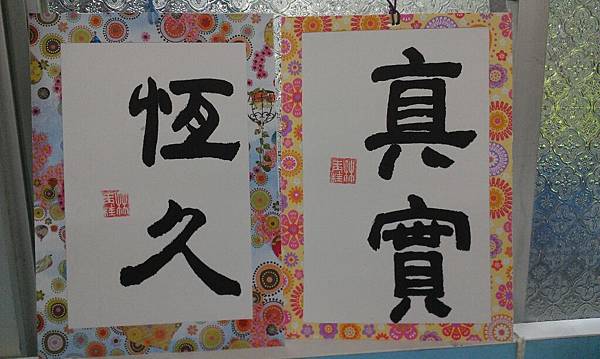 真實
恆久